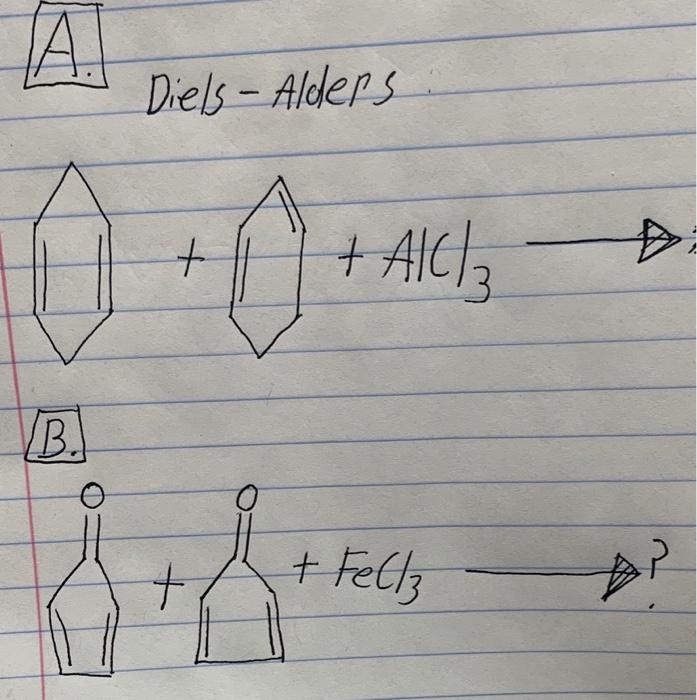 A.
Diels-Alders
+ + AlCl3
B.
O O
+ + FeCl3 ?